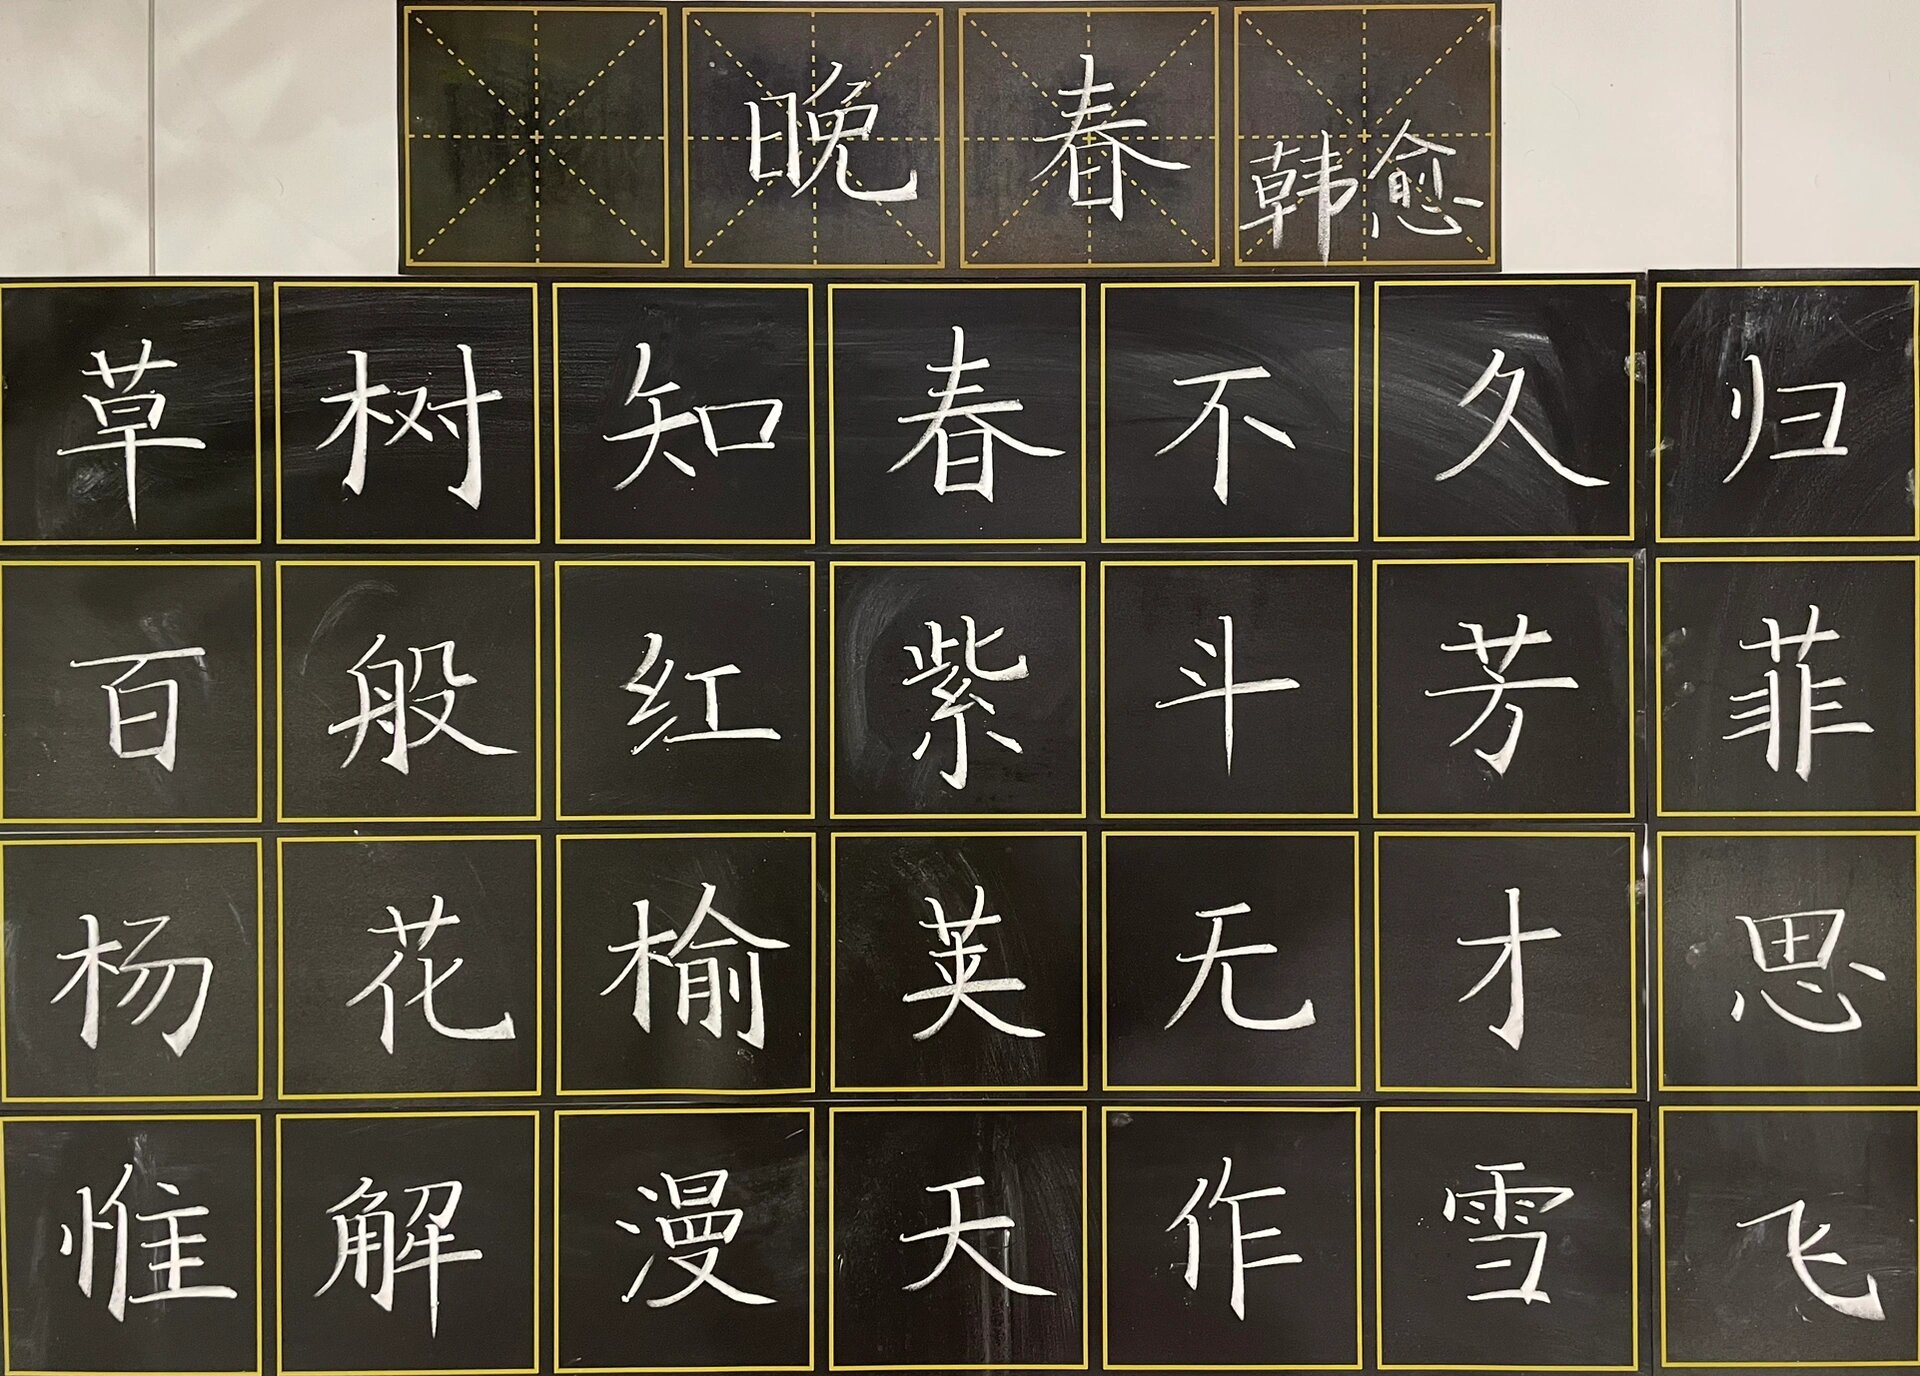 晚春 韩愈
草树知春不久归
百般红紫斗芳菲
杨花榆荚无才思
惟解漫天作雪飞